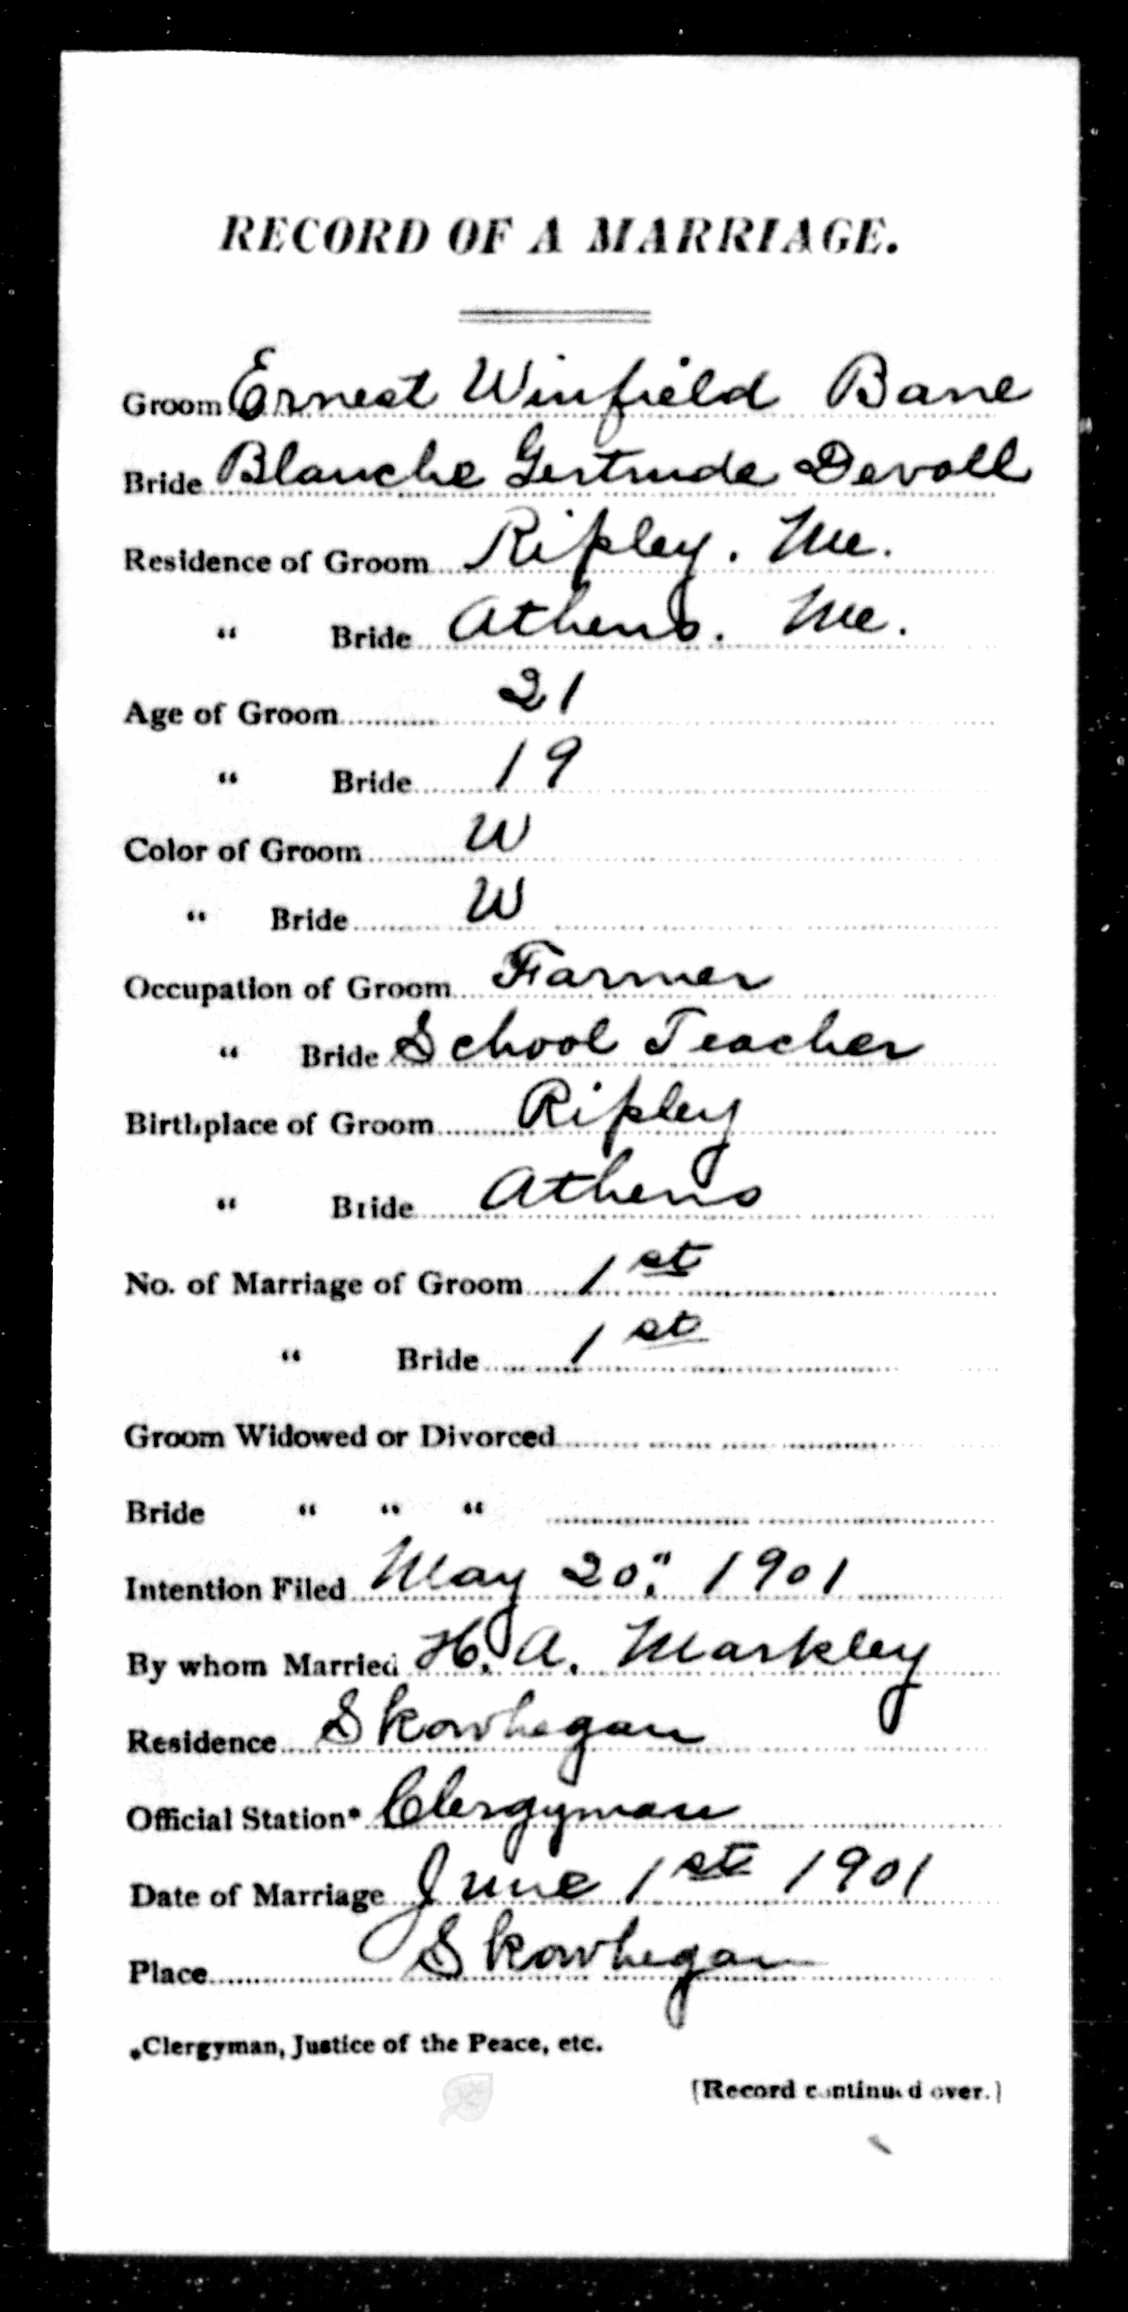 RECORD OF A MARRIAGE.
Groom Ernest Winfield Bane
Bride Blanche Gertrude Devoll
Residence of Groom Ripley. Me.
" Bride Athens. Me.
Age of Groom 21
" Bride 19
Color of Groom W
" Bride W
Occupation of Groom Farmer
" Bride School Teacher
Birthplace of Groom Ripley
" Bride Athens
No. of Marriage of Groom 1st
" Bride 1st
Groom Widowed or Divorced
Bride " " "
Intention Filed May 20." 1901
By whom Married H. A. Markley
Residence Skowhegan
Official Station* Clergyman
Date of Marriage June 1st 1901
Place Skowhegan
*Clergyman, Justice of the Peace, etc.
[Record continued over.]